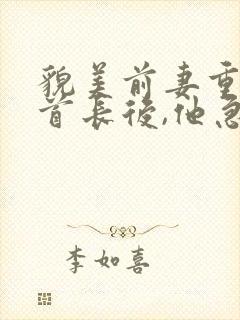 貌美前妻重
首长後,他急
李如喜